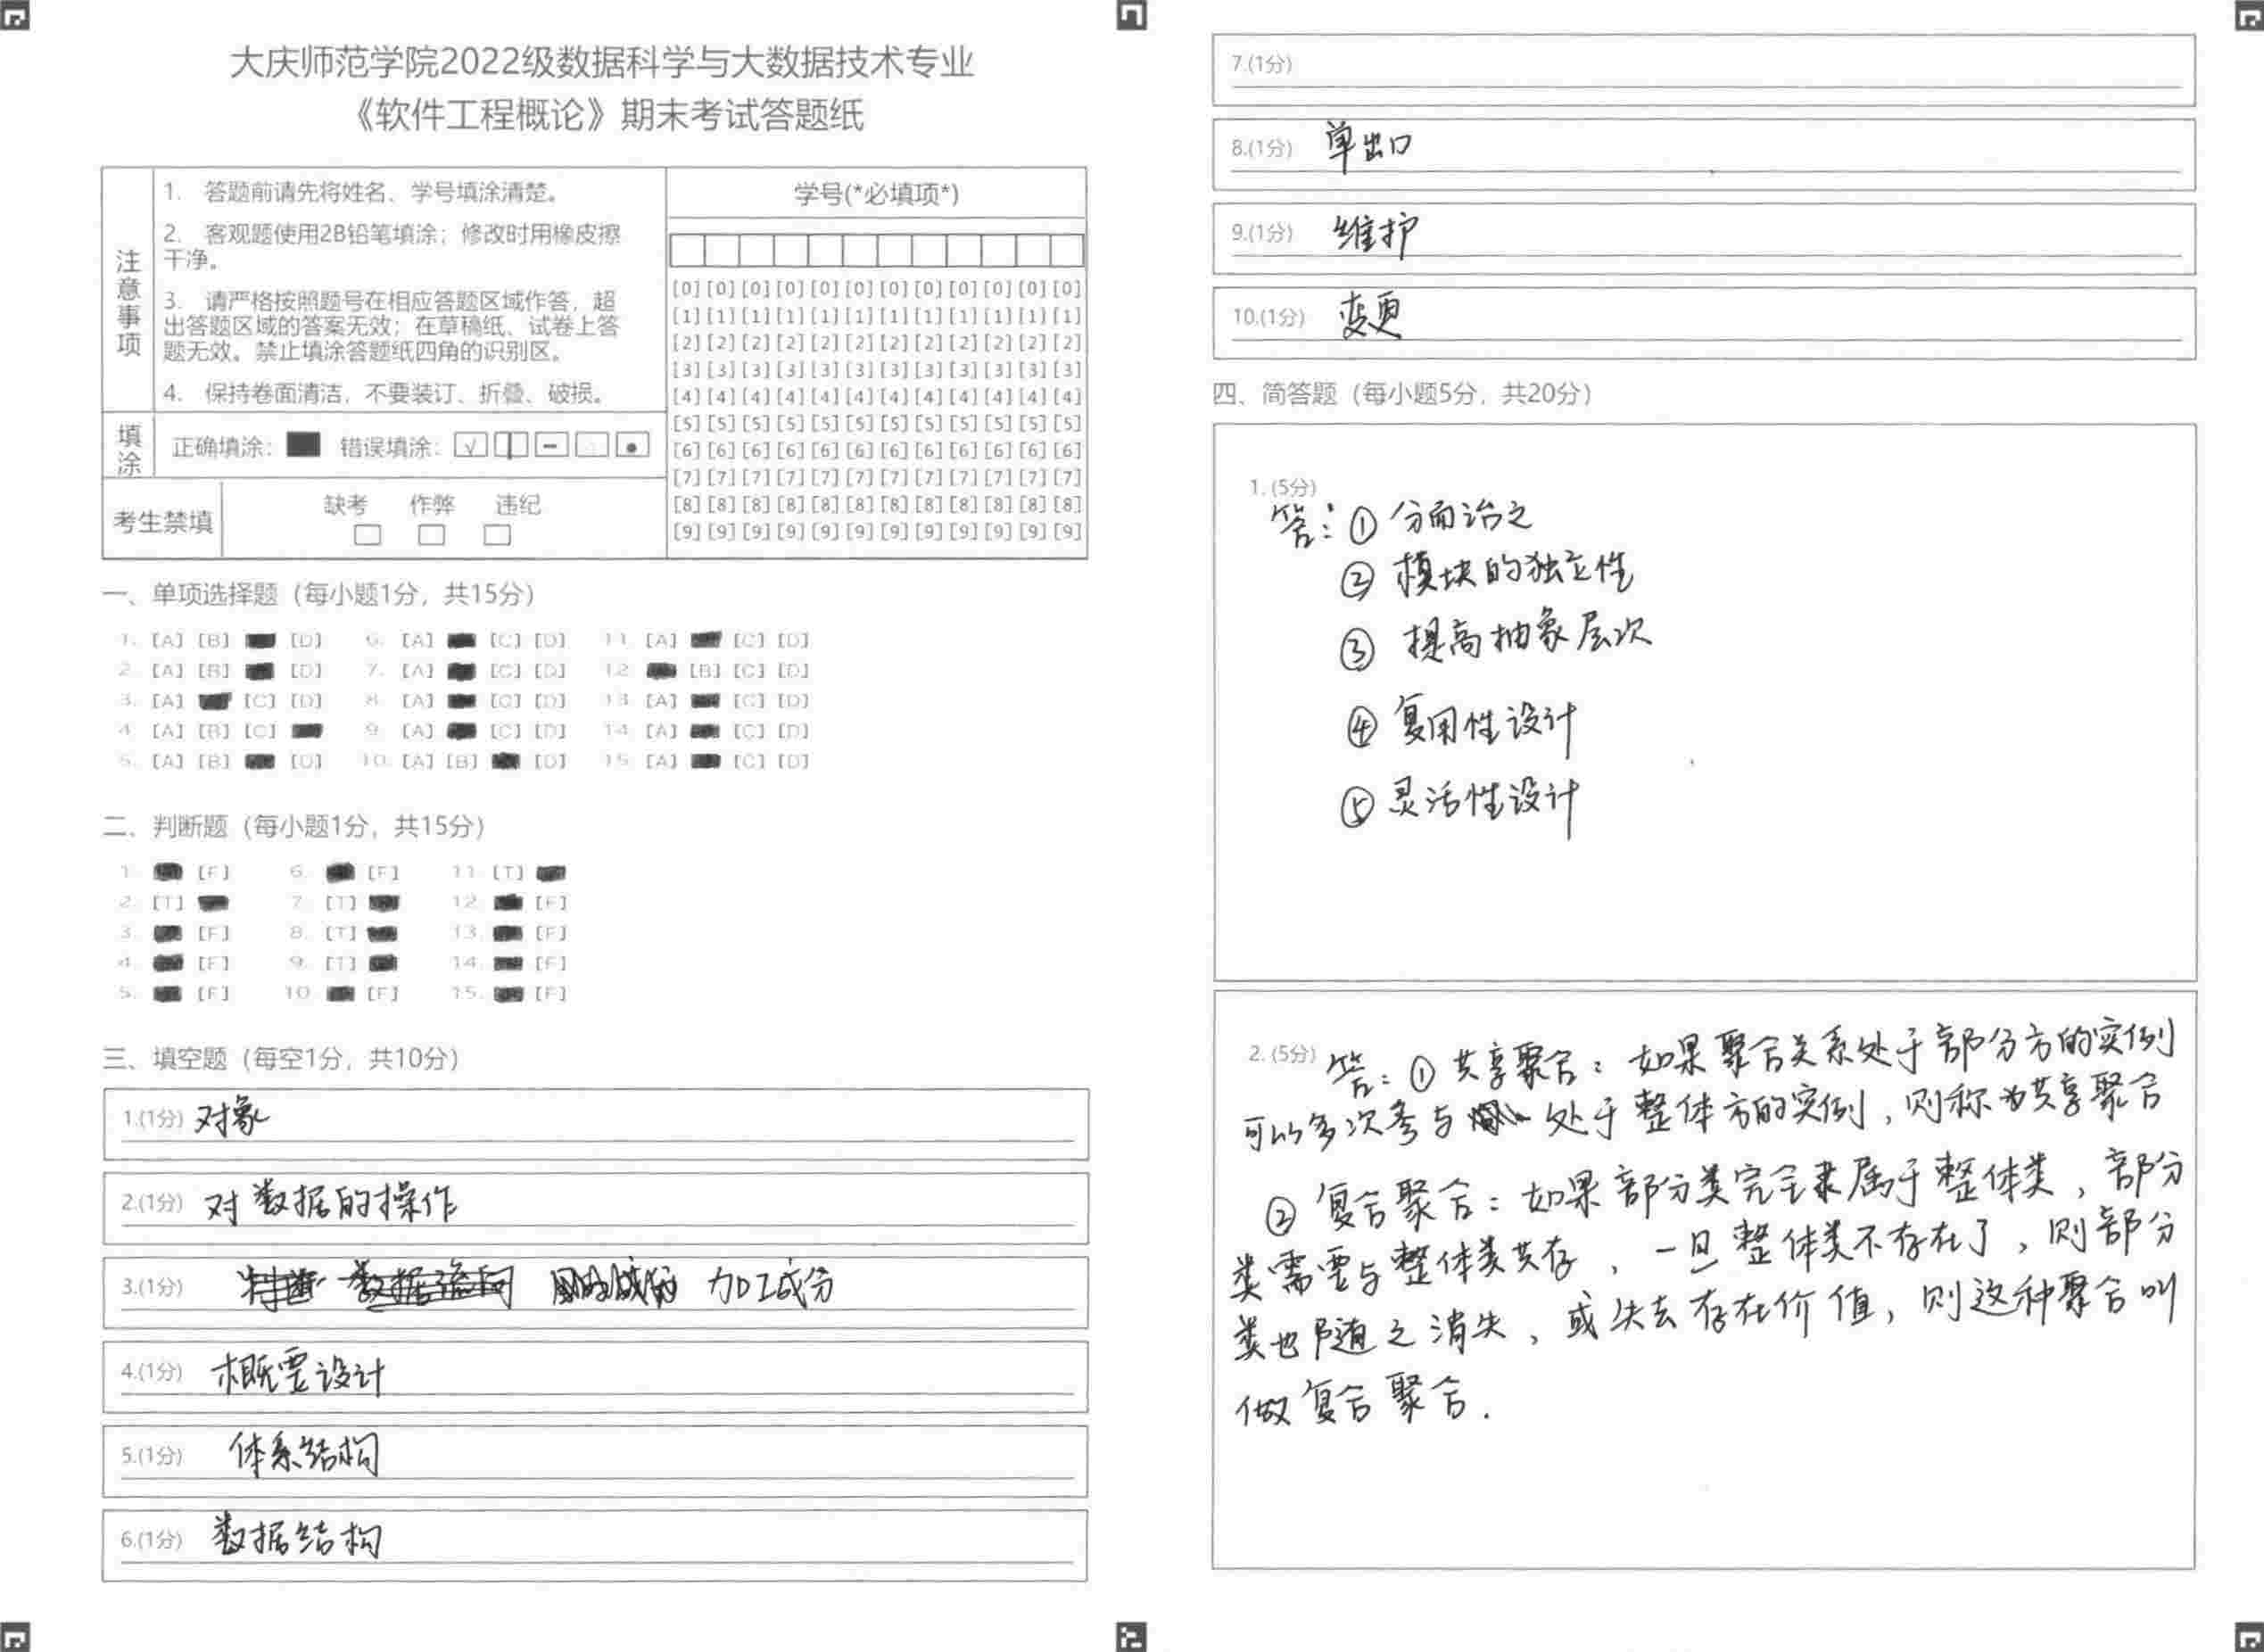 大庆师范学院2022级数据科学与大数据技术专业
《软件工程概论》期末考试答题纸
注意事项
1. 答题前请先将姓名、学号填涂清楚。
2. 客观题使用2B铅笔填涂；修改时用橡皮擦
干净。
3. 请严格按照题号在相应答题区域作答，超
出答题区域的答案无效；在草稿纸、试卷上答
题无效。禁止填涂答题纸四角的识别区。
4. 保持卷面清洁，不要装订、折叠、破损。
填涂
正确填涂： 错误填涂：
考生禁填
缺考 作弊 违纪
学号(*必填项*)
[0] [0] [0] [0] [0] [0] [0] [0] [0] [0] [0] [0]
[1] [1] [1] [1] [1] [1] [1] [1] [1] [1] [1] [1]
[2] [2] [2] [2] [2] [2] [2] [2] [2] [2] [2] [2]
[3] [3] [3] [3] [3] [3] [3] [3] [3] [3] [3] [3]
[4] [4] [4] [4] [4] [4] [4] [4] [4] [4] [4] [4]
[5] [5] [5] [5] [5] [5] [5] [5] [5] [5] [5] [5]
[6] [6] [6] [6] [6] [6] [6] [6] [6] [6] [6] [6]
[7] [7] [7] [7] [7] [7] [7] [7] [7] [7] [7] [7]
[8] [8] [8] [8] [8] [8] [8] [8] [8] [8] [8] [8]
[9] [9] [9] [9] [9] [9] [9] [9] [9] [9] [9] [9]
一、单项选择题（每小题1分，共15分）
1. [A] [B] [D] 6. [A] [C] [D] 11. [A] [C] [D]
2. [A] [B] [D] 7. [A] [C] [D] 12. [B] [C] [D]
3. [A] [C] [D] 8. [A] [C] [D] 13. [A] [C] [D]
4. [A] [B] [C] 9. [A] [C] [D] 14. [A] [C] [D]
5. [A] [B] [D] 10. [A] [B] [D] 15. [A] [C] [D]
二、判断题（每小题1分，共15分）
1. [F] 6. [F] 11. [T]
2. [T] 7. [T] 12. [F]
3. [F] 8. [T] 13. [F]
4. [F] 9. [T] 14. [F]
5. [F] 10. [F] 15. [F]
三、填空题（每空1分，共10分）
1.(1分) 对象
2.(1分) 对数据的操作
3.(1分) 加工成份
4.(1分) 概要设计
5.(1分) 体系结构
6.(1分) 数据结构
7.(1分)
8.(1分) 单出口
9.(1分) 维护
10.(1分) 变更
四、简答题（每小题5分，共20分）
1. (5分)
答：① 分而治之
② 模块的独立性
③ 提高抽象层次
④ 复用性设计
⑤ 灵活性设计
2. (5分) 答：① 共享聚合：如果聚合关系处于部分方的实例
可以多次参与处于整体方的实例，则称为共享聚合
② 复合聚合：如果部分类完全隶属于整体类，部分
类需要与整体类共存，一旦整体类不存在了，则部分
类也随之消失，或失去存在价值，则这种聚合叫
做复合聚合.